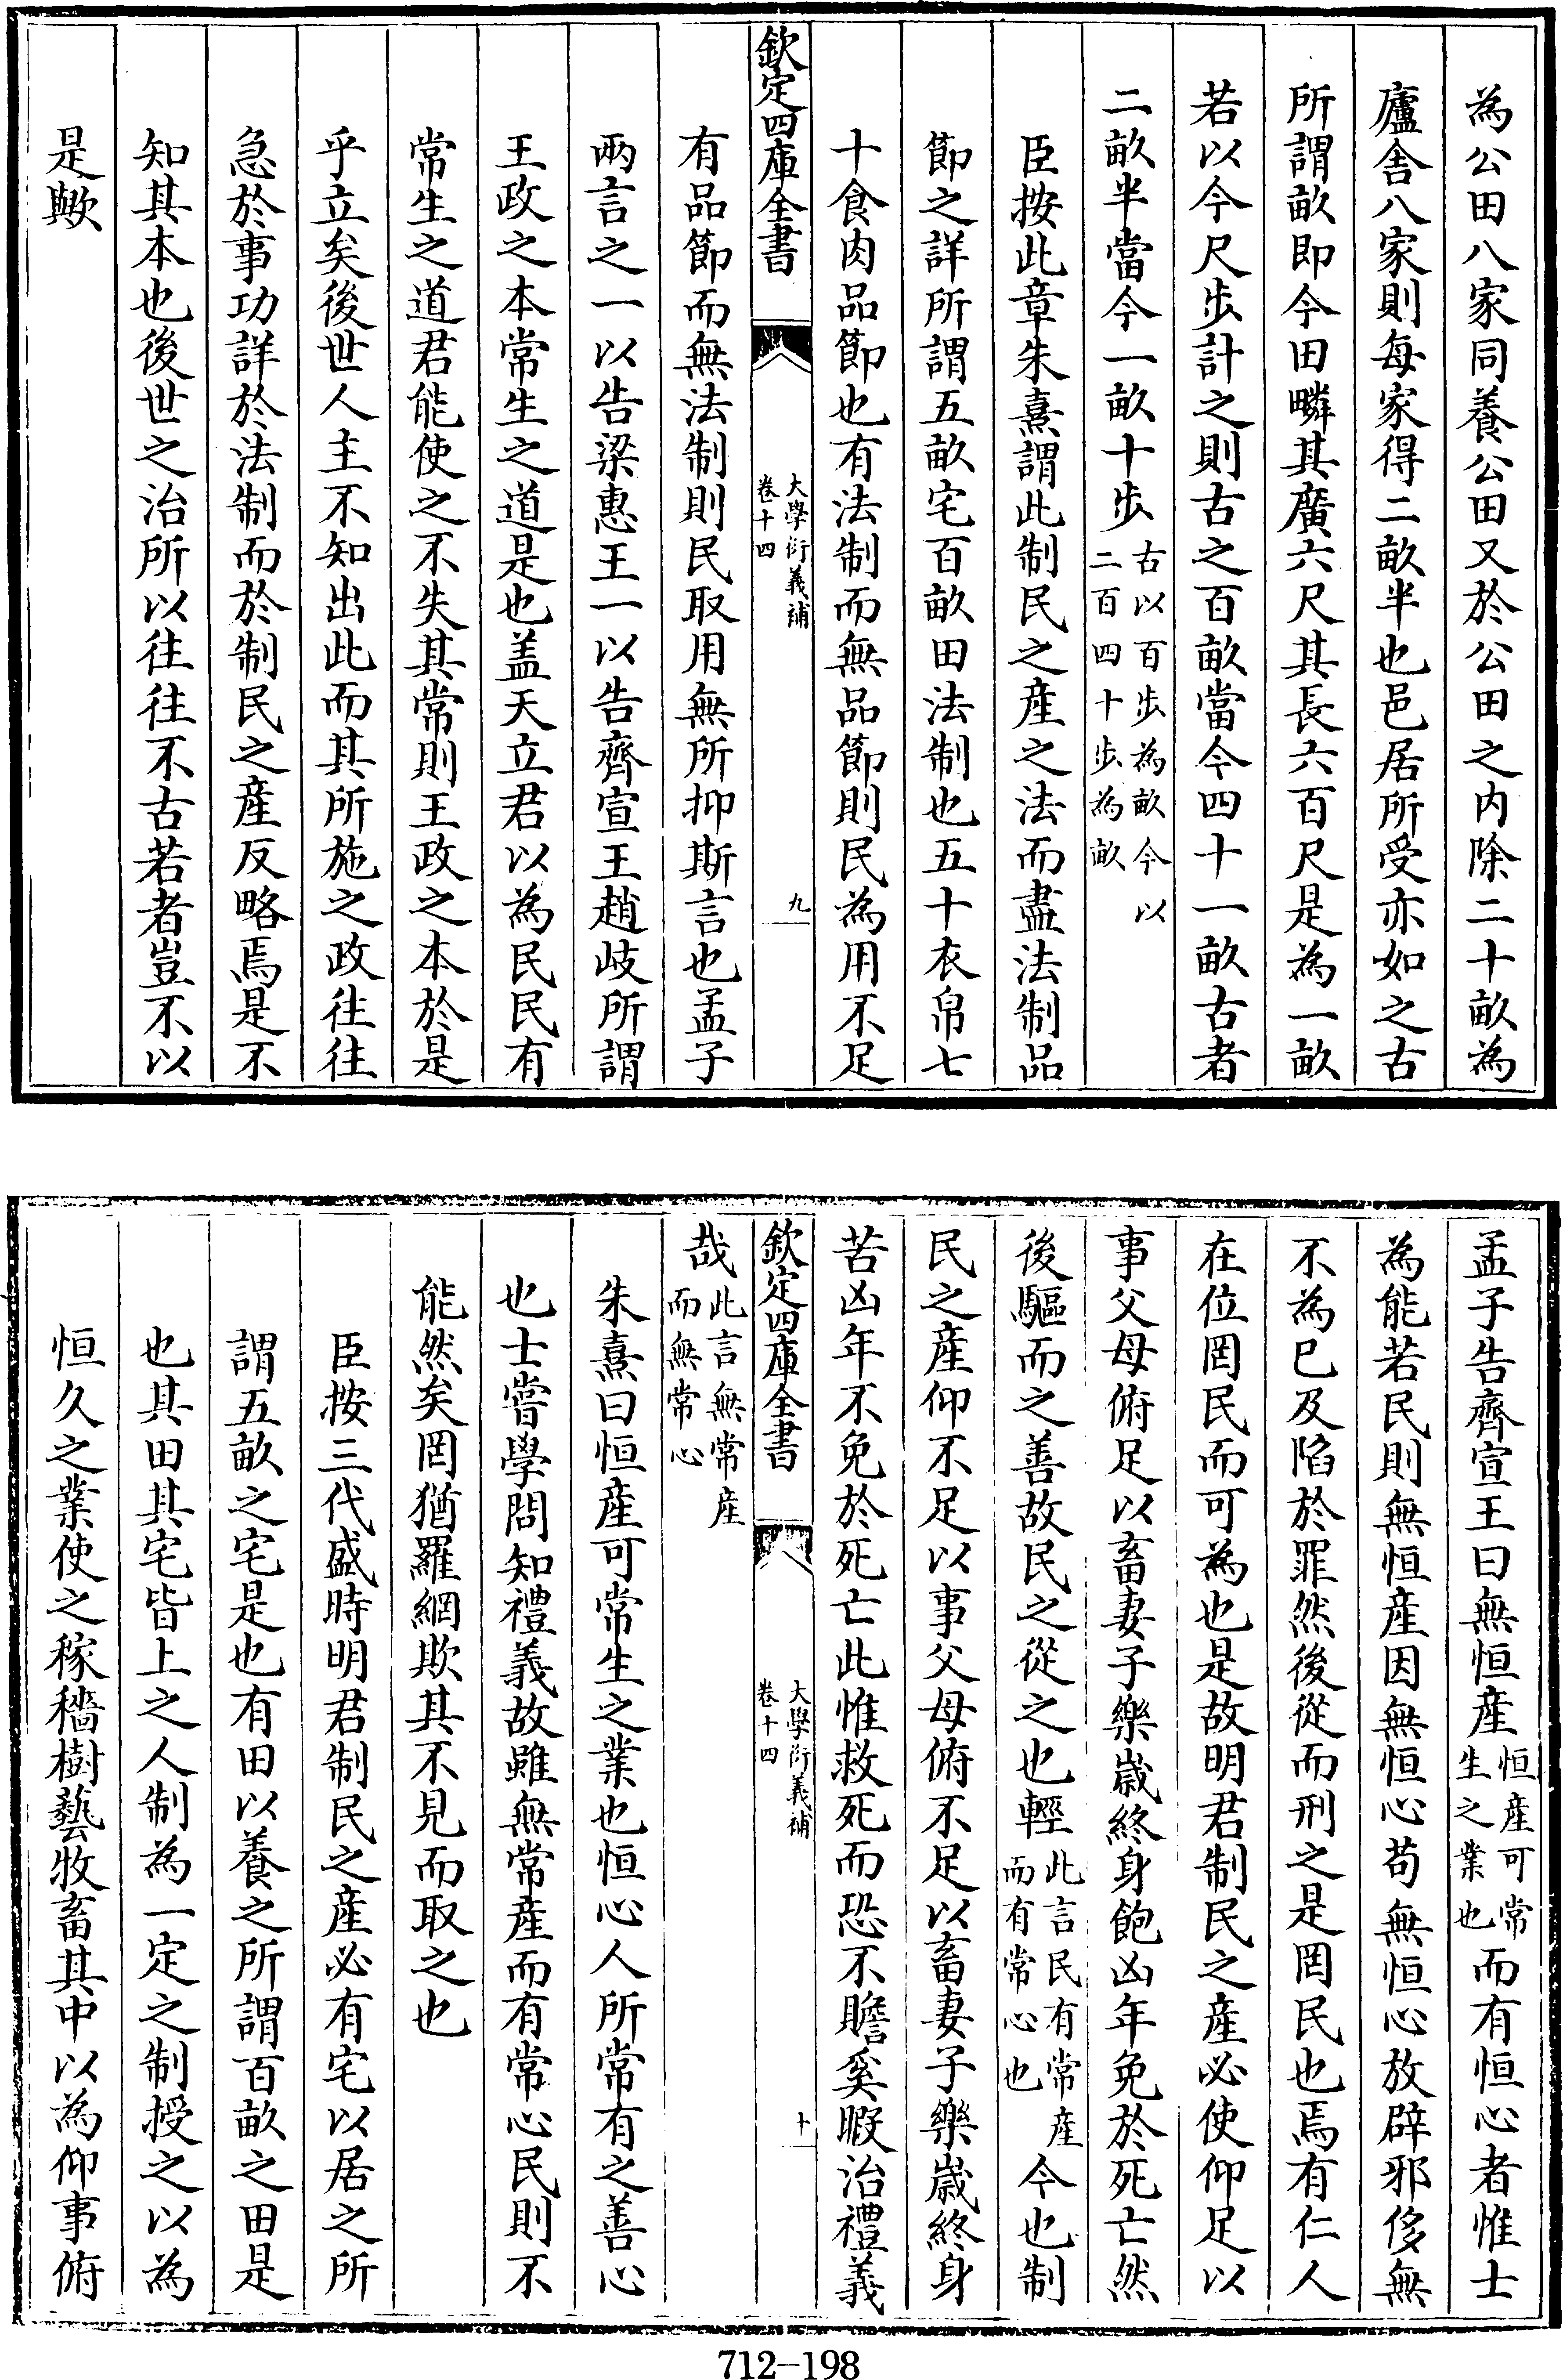 為公田八家同養公田又於公田之内除二十畝為
廬舍八家則每家得二畝半也邑居所受亦如之古
所謂畝即今田疄其廣六尺其長六百尺是為一畝
若以今尺步計之則古之百畝當今四十一畝古者
二畝半當今一畝十步古以百步為畝今以二百四十步為畝
臣按此章朱熹謂此制民之産之法而盡法制品
節之詳所謂五畝宅百畝田法制也五十衣帛七
十食肉品節也有法制而無品節則民為用不足
欽定四庫全書
大學衍義補
卷十四
九
有品節而無法制則民取用無所抑斯言也孟子
兩言之一以告梁惠王一以告齊宣王趙岐所謂
王政之本常生之道是也盖天立君以為民民有
常生之道君能使之不失其常則王政之本於是
乎立矣後世人主不知出此而其所施之政往往
急於事功詳於法制而於制民之産反略焉是不
知其本也後世之治所以往往不古若者豈不以
是歟
孟子告齊宣王曰無恒産恒産可常生之業也而有恒心者惟士
為能若民則無恒産因無恒心苟無恒心放辟邪侈無
不為已及陷於罪然後從而刑之是罔民也焉有仁人
在位罔民而可為也是故明君制民之産必使仰足以
事父母俯足以畜妻子樂歲終身飽凶年免於死亡然
後驅而之善故民之從之也輕此言民有常産而有常心也今也制
民之産仰不足以事父母俯不足以畜妻子樂歲終身
苦凶年不免於死亡此惟救死而恐不贍奚暇治禮義
欽定四庫全書
大學衍義補
卷十四
十
哉此言無常産而無常心
朱熹曰恒産可常生之業也恒心人所常有之善心
也士嘗學問知禮義故雖無常産而有常心民則不
能然矣罔猶羅網欺其不見而取之也
臣按三代盛時明君制民之産必有宅以居之所
謂五畝之宅是也有田以養之所謂百畝之田是
也其田其宅皆上之人制為一定之制授之以為
恒久之業使之稼穡樹藝牧畜其中以為仰事俯
712-198